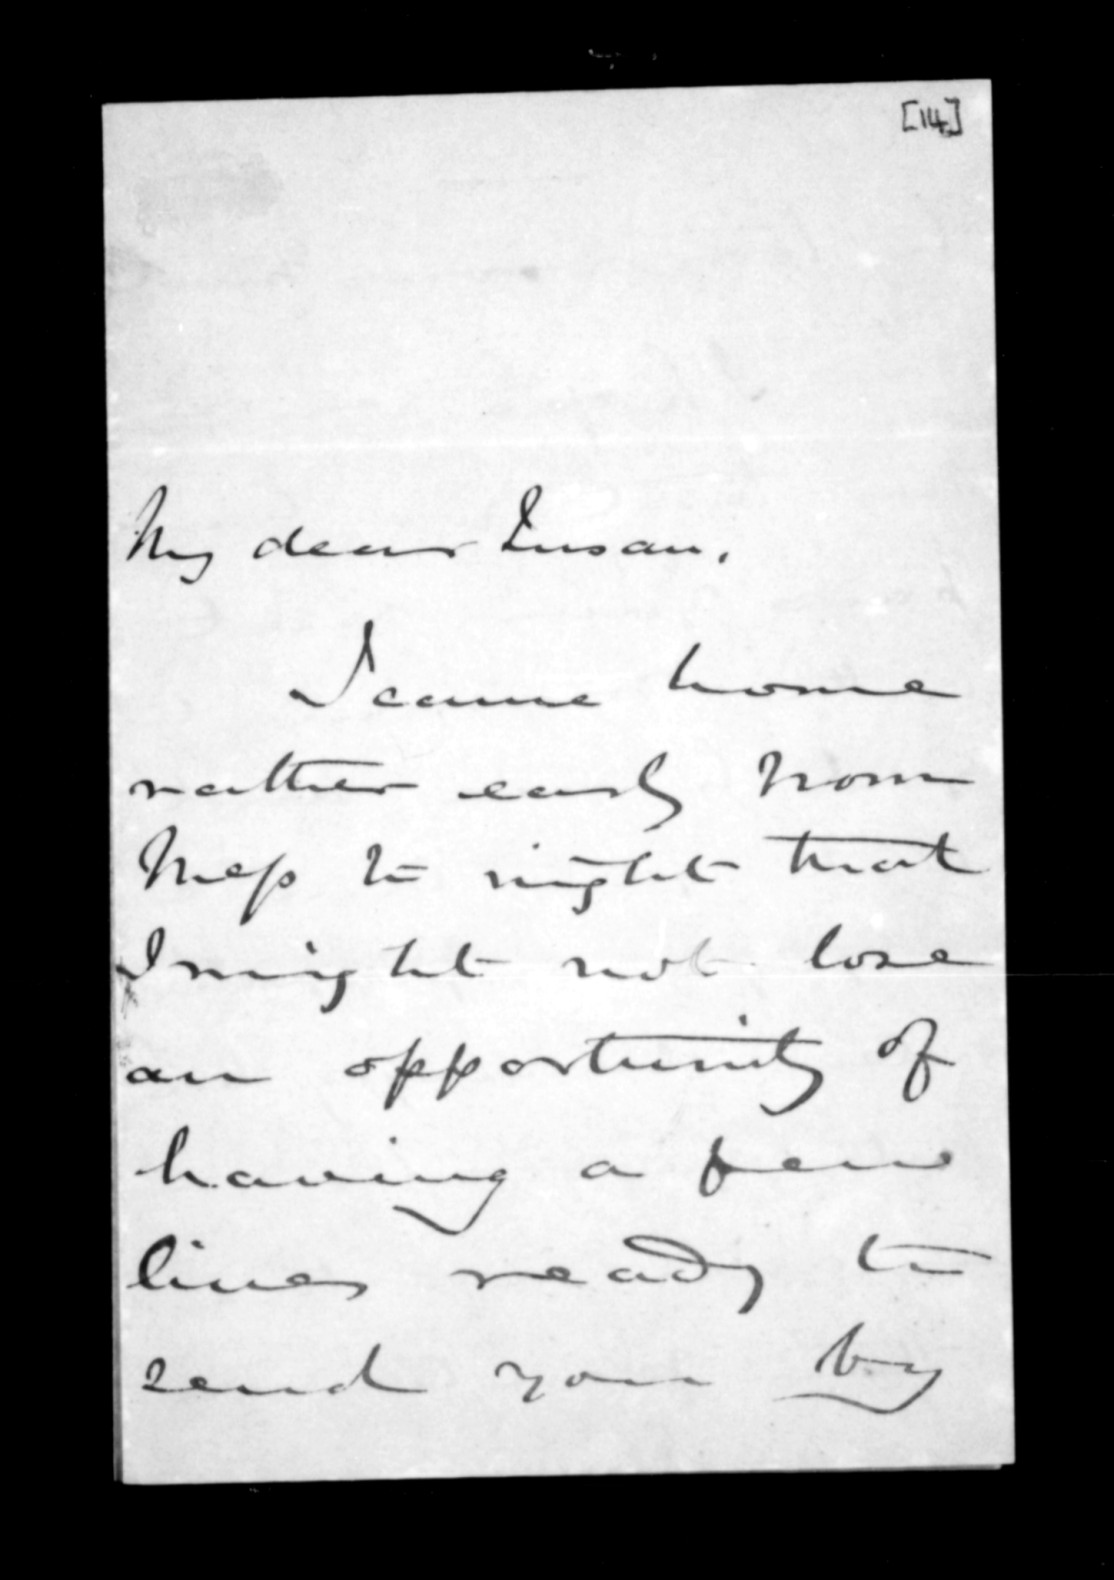 [14]
My dear Susan,
I came home
rather early from
Mess to night that
I might not lose
an opportunity of
having a few
lines ready to
send you by